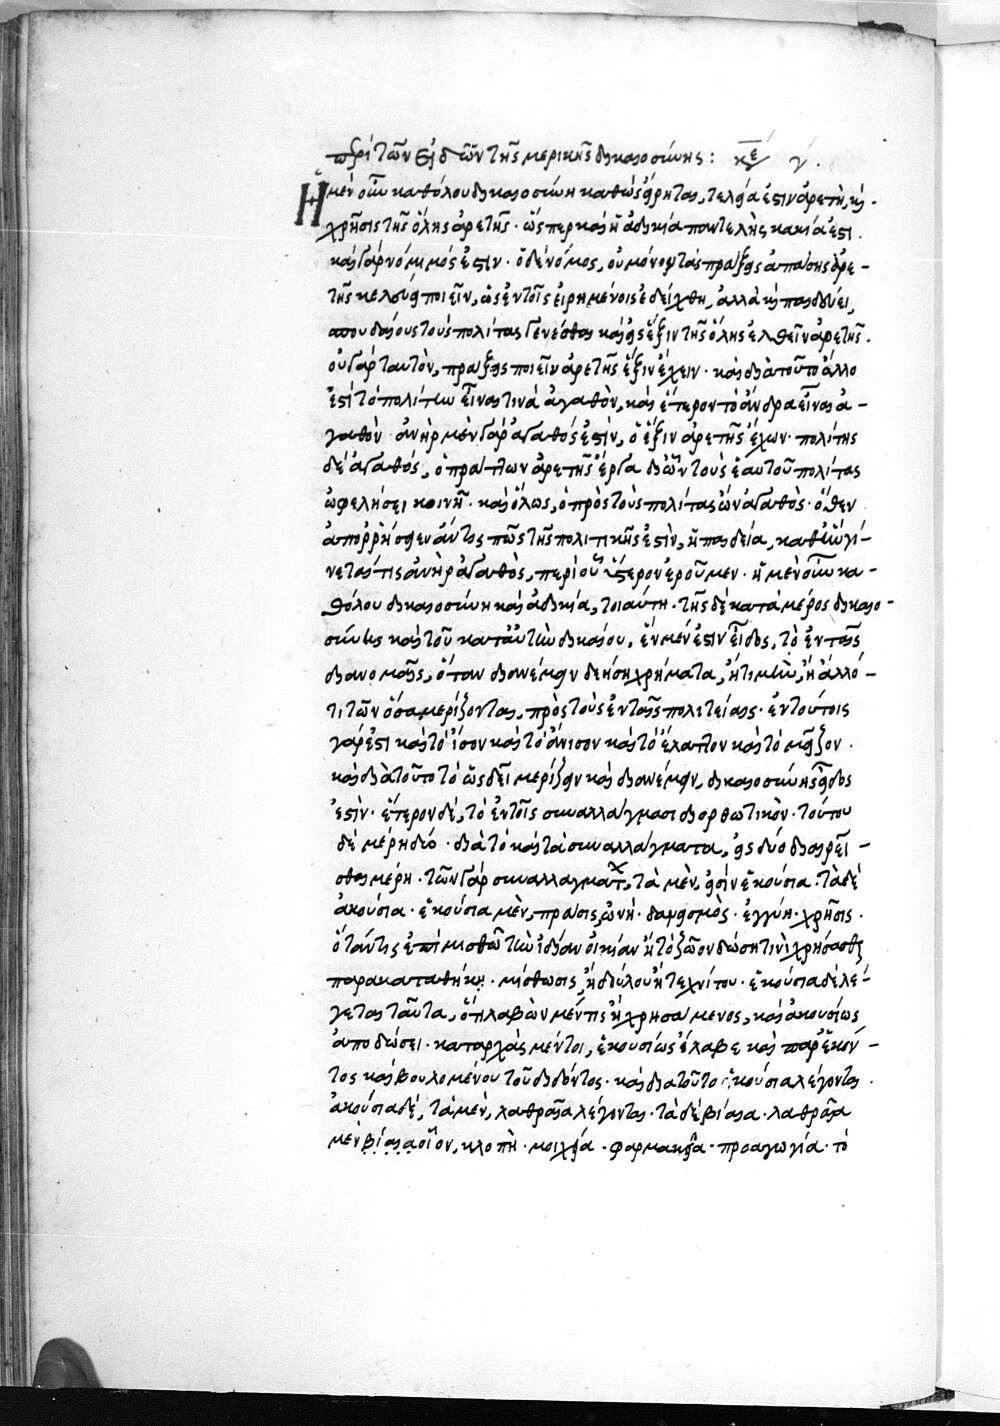 περὶ τῶν εἰδῶν τῆς μερικῆς δικαιοσύνης : κε γ΄.
Ἡ μὲν οὖν καθόλου δικαιοσύνη καθὼς εἴρηται, τελεία ἐστὶν ἀρετὴ, κὴ
χρῆσις τῆς ὅλης ἀρετῆς · ὥσπερ καὶ ἡ ἀδικία παντελὴς κακία ἐστι.
καὶ γὰρ νόμιμός ἐστιν · ὁ δὲ νόμος, οὐ μόνον τὰς πράξεις ἁπάσης ἀρε-
τῆς κελεύει ποιεῖν, ὡς ἐν τοῖς εἰρημένοις ἐδείχθη, ἀλλὰ κὴ παιδεύει,
σπουδαίους τοὺς πολίτας γενέσθαι καὶ εἰς ἕξιν τῆς ὅλης ἐλθεῖν ἀρετῆς.
οὐ γὰρ ταυτὸν, πράξεις ποιεῖν ἀρετῆς ἕξιν ἔχειν · καὶ διὰ τοῦτο ἄλλο
ἐστὶ τὸ πολίτην εἶναι τινὰ ἀγαθὸν, καὶ ἕτερον τὸ ἄνδρα εἶναι ἀ-
γαθὸν · ἀνὴρ μὲν γὰρ ἀγαθός ἐστὶν, ὁ ἕξιν ἀρετῆς ἔχων · πολίτης
δὲ ἀγαθός, ὁ πράττων ἀρετῆς ἔργα δι' ὧν τοὺς ἑαυτοῦ πολίτας
ὠφελήσει κοινῇ · καὶ ὅλως, ὁ πρὸς τοὺς πολίτας ὢν ἀγαθὸς · ὅθεν
ἀπορρήσειεν ἄν τις πῶς τῆς πολιτικῆς ἐστὶν, ἡ παιδεία, καθ' ἣν γί-
νεταί τις ἀνὴρ ἀγαθὸς, περὶ οὗ ὕστερον ἐροῦμεν · ἡ μὲν οὖν κα-
θόλου δικαιοσύνη καὶ ἀδικία, τοιαύτη · τῆς δὲ κατὰ μέρος δικαιο-
σύνης καὶ τοῦ κατ' αὐτὴν δικαίου, ἓν μέν ἐστιν εἶδος, τὸ ἐν ταῖς
διανομαῖς, ὅταν διανέμειν δεήσῃ χρήματα, ἢ τιμὴν, ἢ ἄλλό-
τι τῶν ὅσα μερίζονται, πρὸς τοὺς ἐν ταῖς πολιτείαις · ἐν τούτοις
γάρ ἐστι καὶ τὸ ἴσον καὶ τὸ ἄνισον καὶ τὸ ἔλαττον καὶ τὸ μεῖζον.
καὶ διὰ τοῦτο τὸ ὡς δεῖ μερίζειν καὶ διανέμειν, δικαιοσύνης εἶδος
ἐστὶν · ἕτερον δέ, τὸ ἐν τοῖς συναλλάγμασι διορθωτικὸν · τούτου
δὲ μέρη δύο · διὰ τὸ καὶ τὰ συναλλάγματα, εἰς δύο διαιρεῖ-
σθαι μέρη · τῶν γὰρ συναλλαγμάτ, τὰ μὲν, εἰσὶν ἑκούσια · τὰ δὲ
ἀκούσια · ἑκούσια μὲν, πρᾶσις, ὠνή · δανεισμὸς · ἐγγύη · χρῆσις ·
ὅταν τις ἐπὶ μισθῶ τὴν ἰδίαν οἰκίαν ἢ τὸ ζῶον δώσῃ τινὶ χρήσασθαι
παρακαταθήκη · μίσθωσις, ἢ δούλου ἢ τεχνίτου · ἑκούσια δὲ λέ-
γεται ταῦτα, ὅτι λαβὼν μέν τις ἢ χρησάμενος, καὶ ἀκουσίως
ἀποδώσει · καταρχὰς μέντοι, ἑκουσίως ἔλαβε καὶ παρ' ἑκόν-
τος καὶ βουλομένου τοῦ διδόντος · καὶ διὰ τοῦτο ἑκούσια λέγονται.
ἀκούσια δέ, τὰ μὲν, λαθραῖα λέγονται · τὰ δὲ βίαια · λαθραῖα
μὲν βίαια οἷον, κλοπὴ · μοιχεία · φαρμακεία · προαγωγία · τὸ